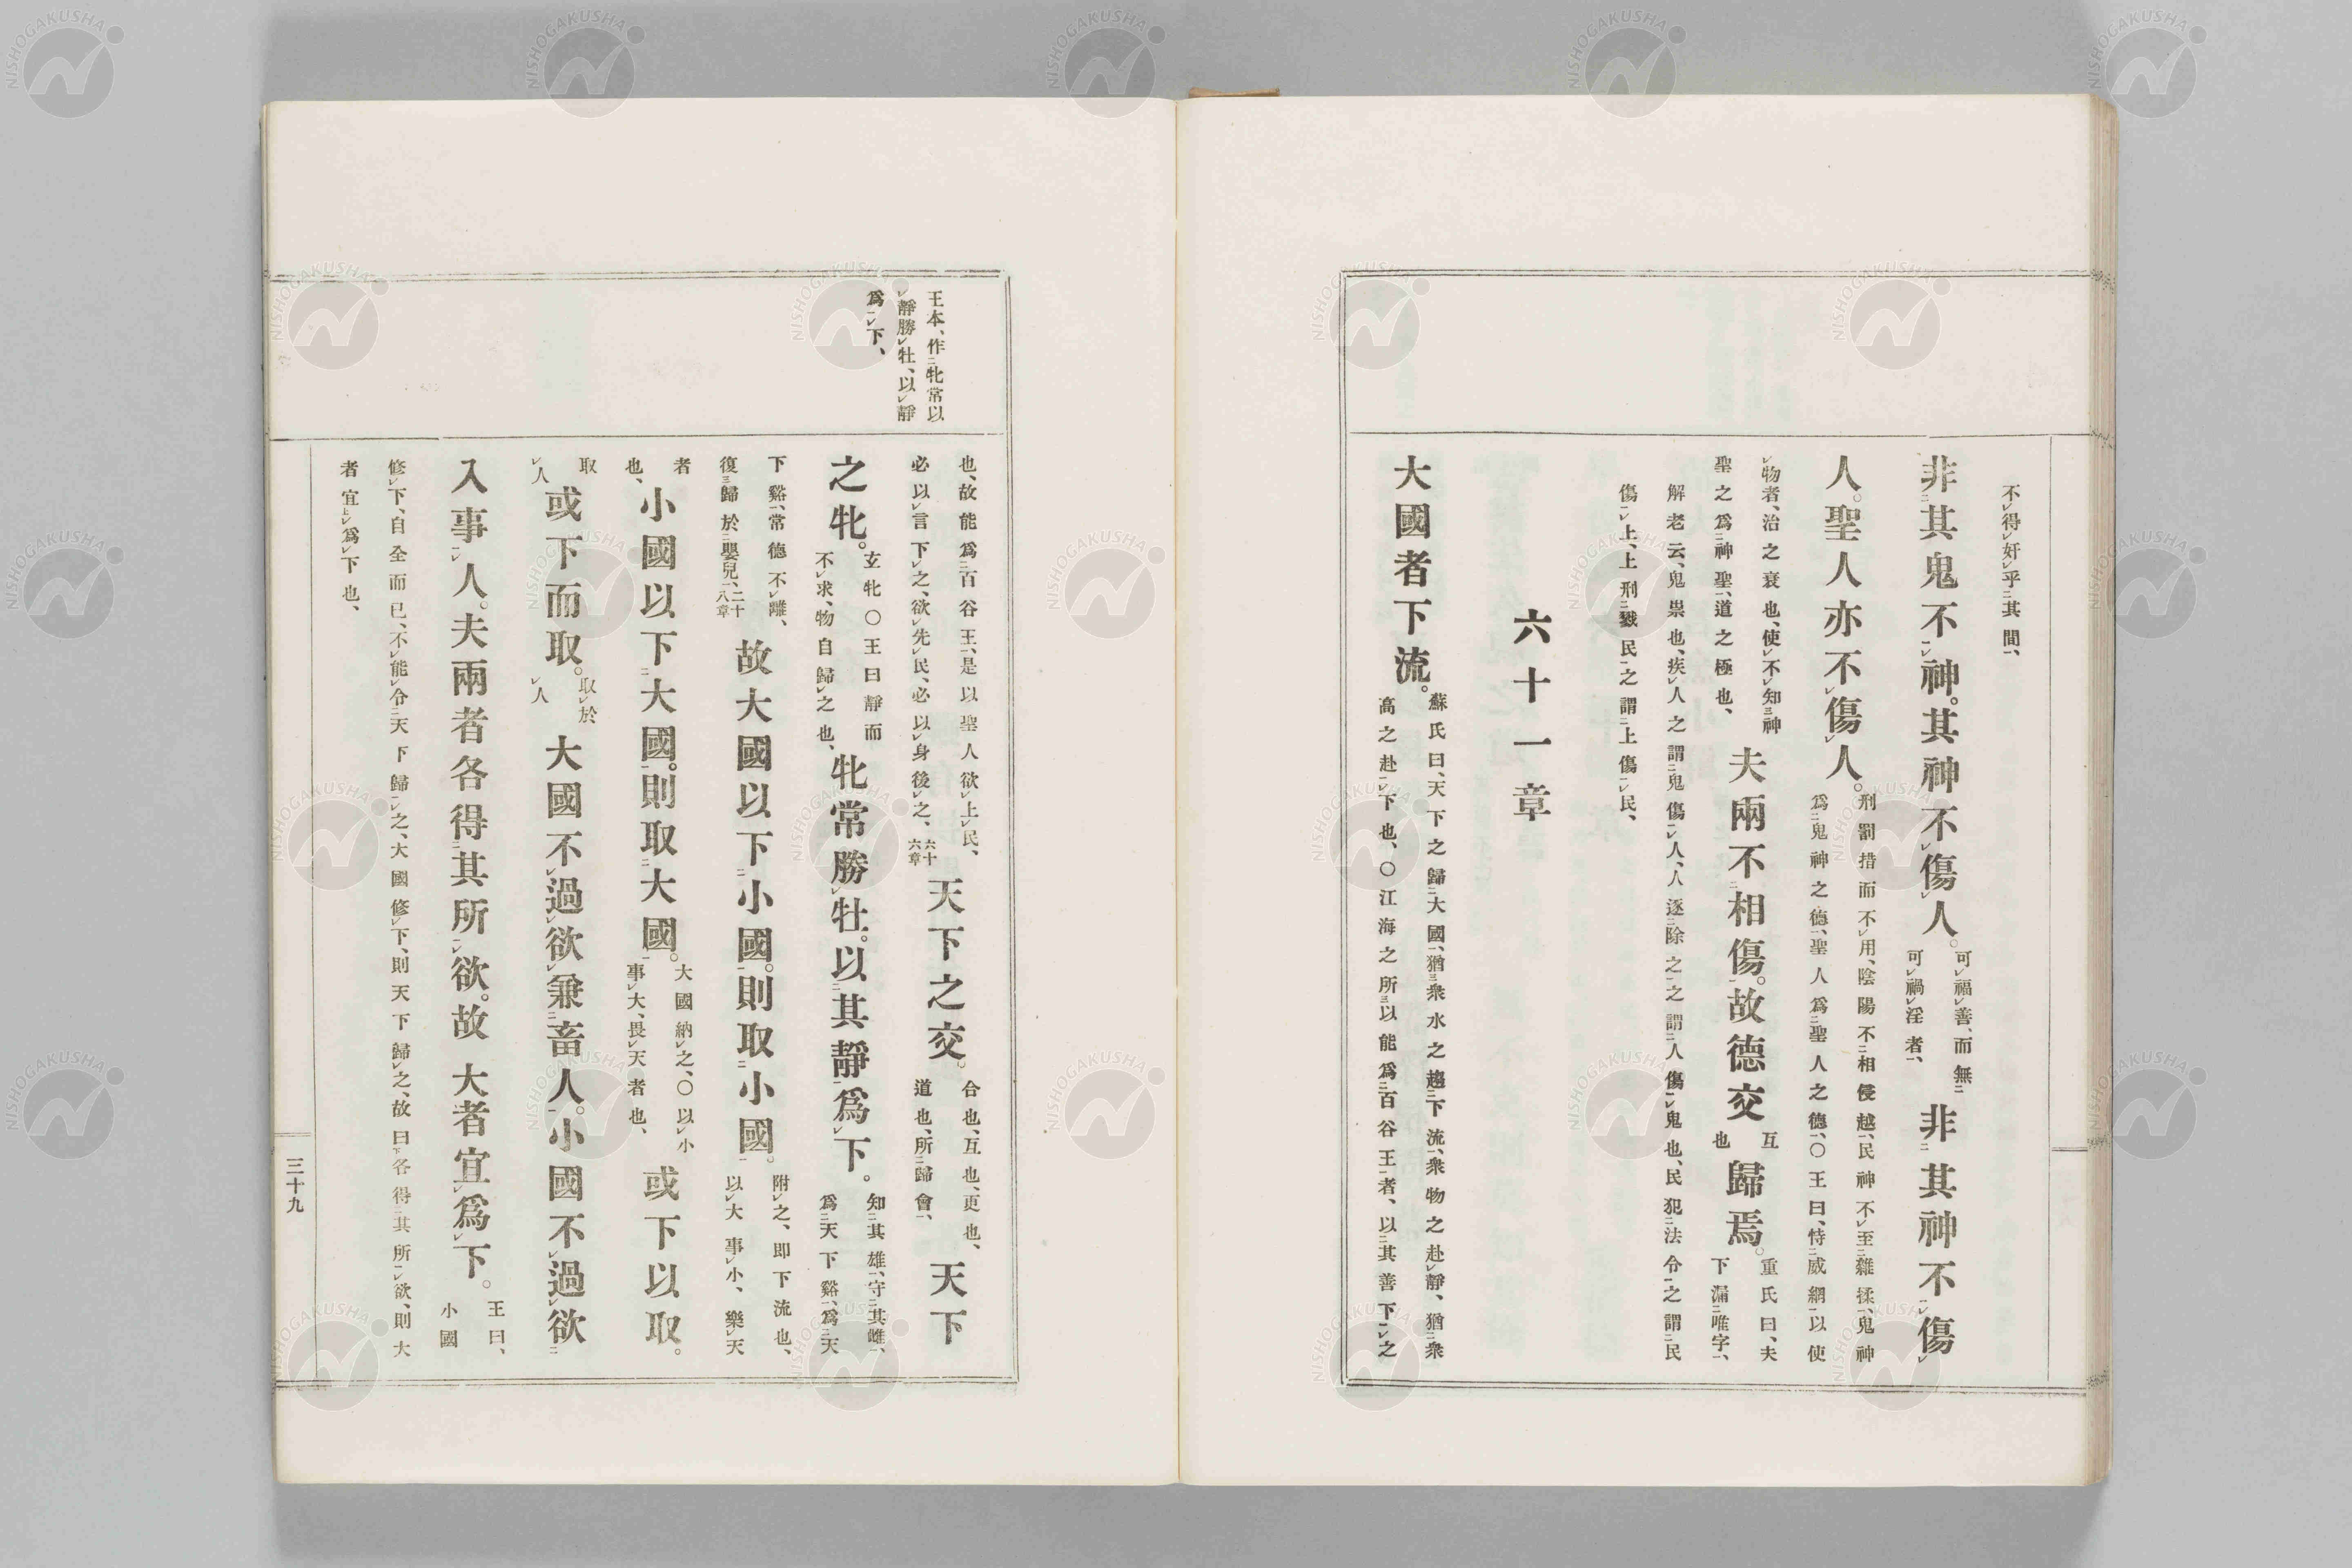 不㆑得㆑奸㆑乎㆓其間㆒、
非㆓其鬼不㆒㆑神。其神不㆑傷㆑人。可㆑福㆑善、而無㆓可㆑禍㆑淫者㆒、非㆓其神不㆒㆑傷㆑
人。聖人亦不㆑傷㆑人。刑罰措而不㆑用、陰陽不㆓相侵越㆒、民神不㆑至㆓雜揉㆒、鬼神爲㆓鬼神之德㆒、聖人爲㆓聖人之德㆒、〇王曰、恃㆓威網㆒以使
㆑物者、治之衰也、使㆑不㆑知㆔神聖之爲㆓神聖㆒、道之極也、夫兩不㆓相傷㆒。故德交互也歸焉。重氏曰、夫下漏㆓唯字㆒、
解老云、鬼祟也、疾㆑人之謂㆓鬼傷㆒㆑人、人逐㆓除之㆒之謂㆓人傷㆒㆑鬼也、民犯㆓法令㆒之謂㆓民
傷㆒㆑上、上刑㆓戮民㆒之謂㆓上傷㆒㆑民、
六十一章
大國者下流。蘇氏曰、天下之歸㆓大國㆒、猶㆔衆水之趨㆓下流㆒、衆物之赴㆑靜、猶㆓衆高之赴㆒㆑下也、〇江海之所㆔以能爲㆓百谷王㆒者、以㆓其善下㆒㆑之
王本、作㆓牝常以
㆑靜勝㆑牡、以㆑靜
爲㆒㆑下、
也、故能爲㆓百谷王㆒、是以聖人欲㆑上㆑民、必以㆑言下㆑之、欲㆑先㆑民、必以㆑身後㆑之、六十六章天下之交。合也、互也、更也、道也、所㆓歸會㆒、天下
之牝。玄牝〇王曰靜而不㆑求、物自歸㆑之也、牝常勝㆑牡。以㆓其靜㆒爲㆑下。知㆓其雄㆒、守㆓其雌㆒、爲㆓天下谿㆒、爲㆓天
下谿㆒、常德不㆑離、復㆓歸於㆓嬰兒㆒、二十八章故大國以下㆓小國㆒。則取㆓小國㆒。附㆑之、即下流也、以㆑大事㆑小、樂㆑天
者也、小國以下㆓大國㆒。則取㆓大國㆒。大國納㆑之、〇以㆑小事㆑大、畏㆑天者也、或下以取。
取㆑人或下而取。取㆑於㆑人大國不㆑過㆑欲㆓兼畜㆒㆑人。小國不㆑過㆑欲㆓
入事㆒㆑人。夫兩者各得㆓其所㆒㆑欲。故大者宜㆑爲㆑下。王曰、小國
修㆑下、自全而已、不㆑能㆑令㆓天下歸㆒㆑之、大國修㆑下、則天下歸㆑之、故曰㆘各得㆓其所㆒㆑欲、則大
者宜㆖㆑爲㆑下也、
三十九
NISHOGAKUSHA